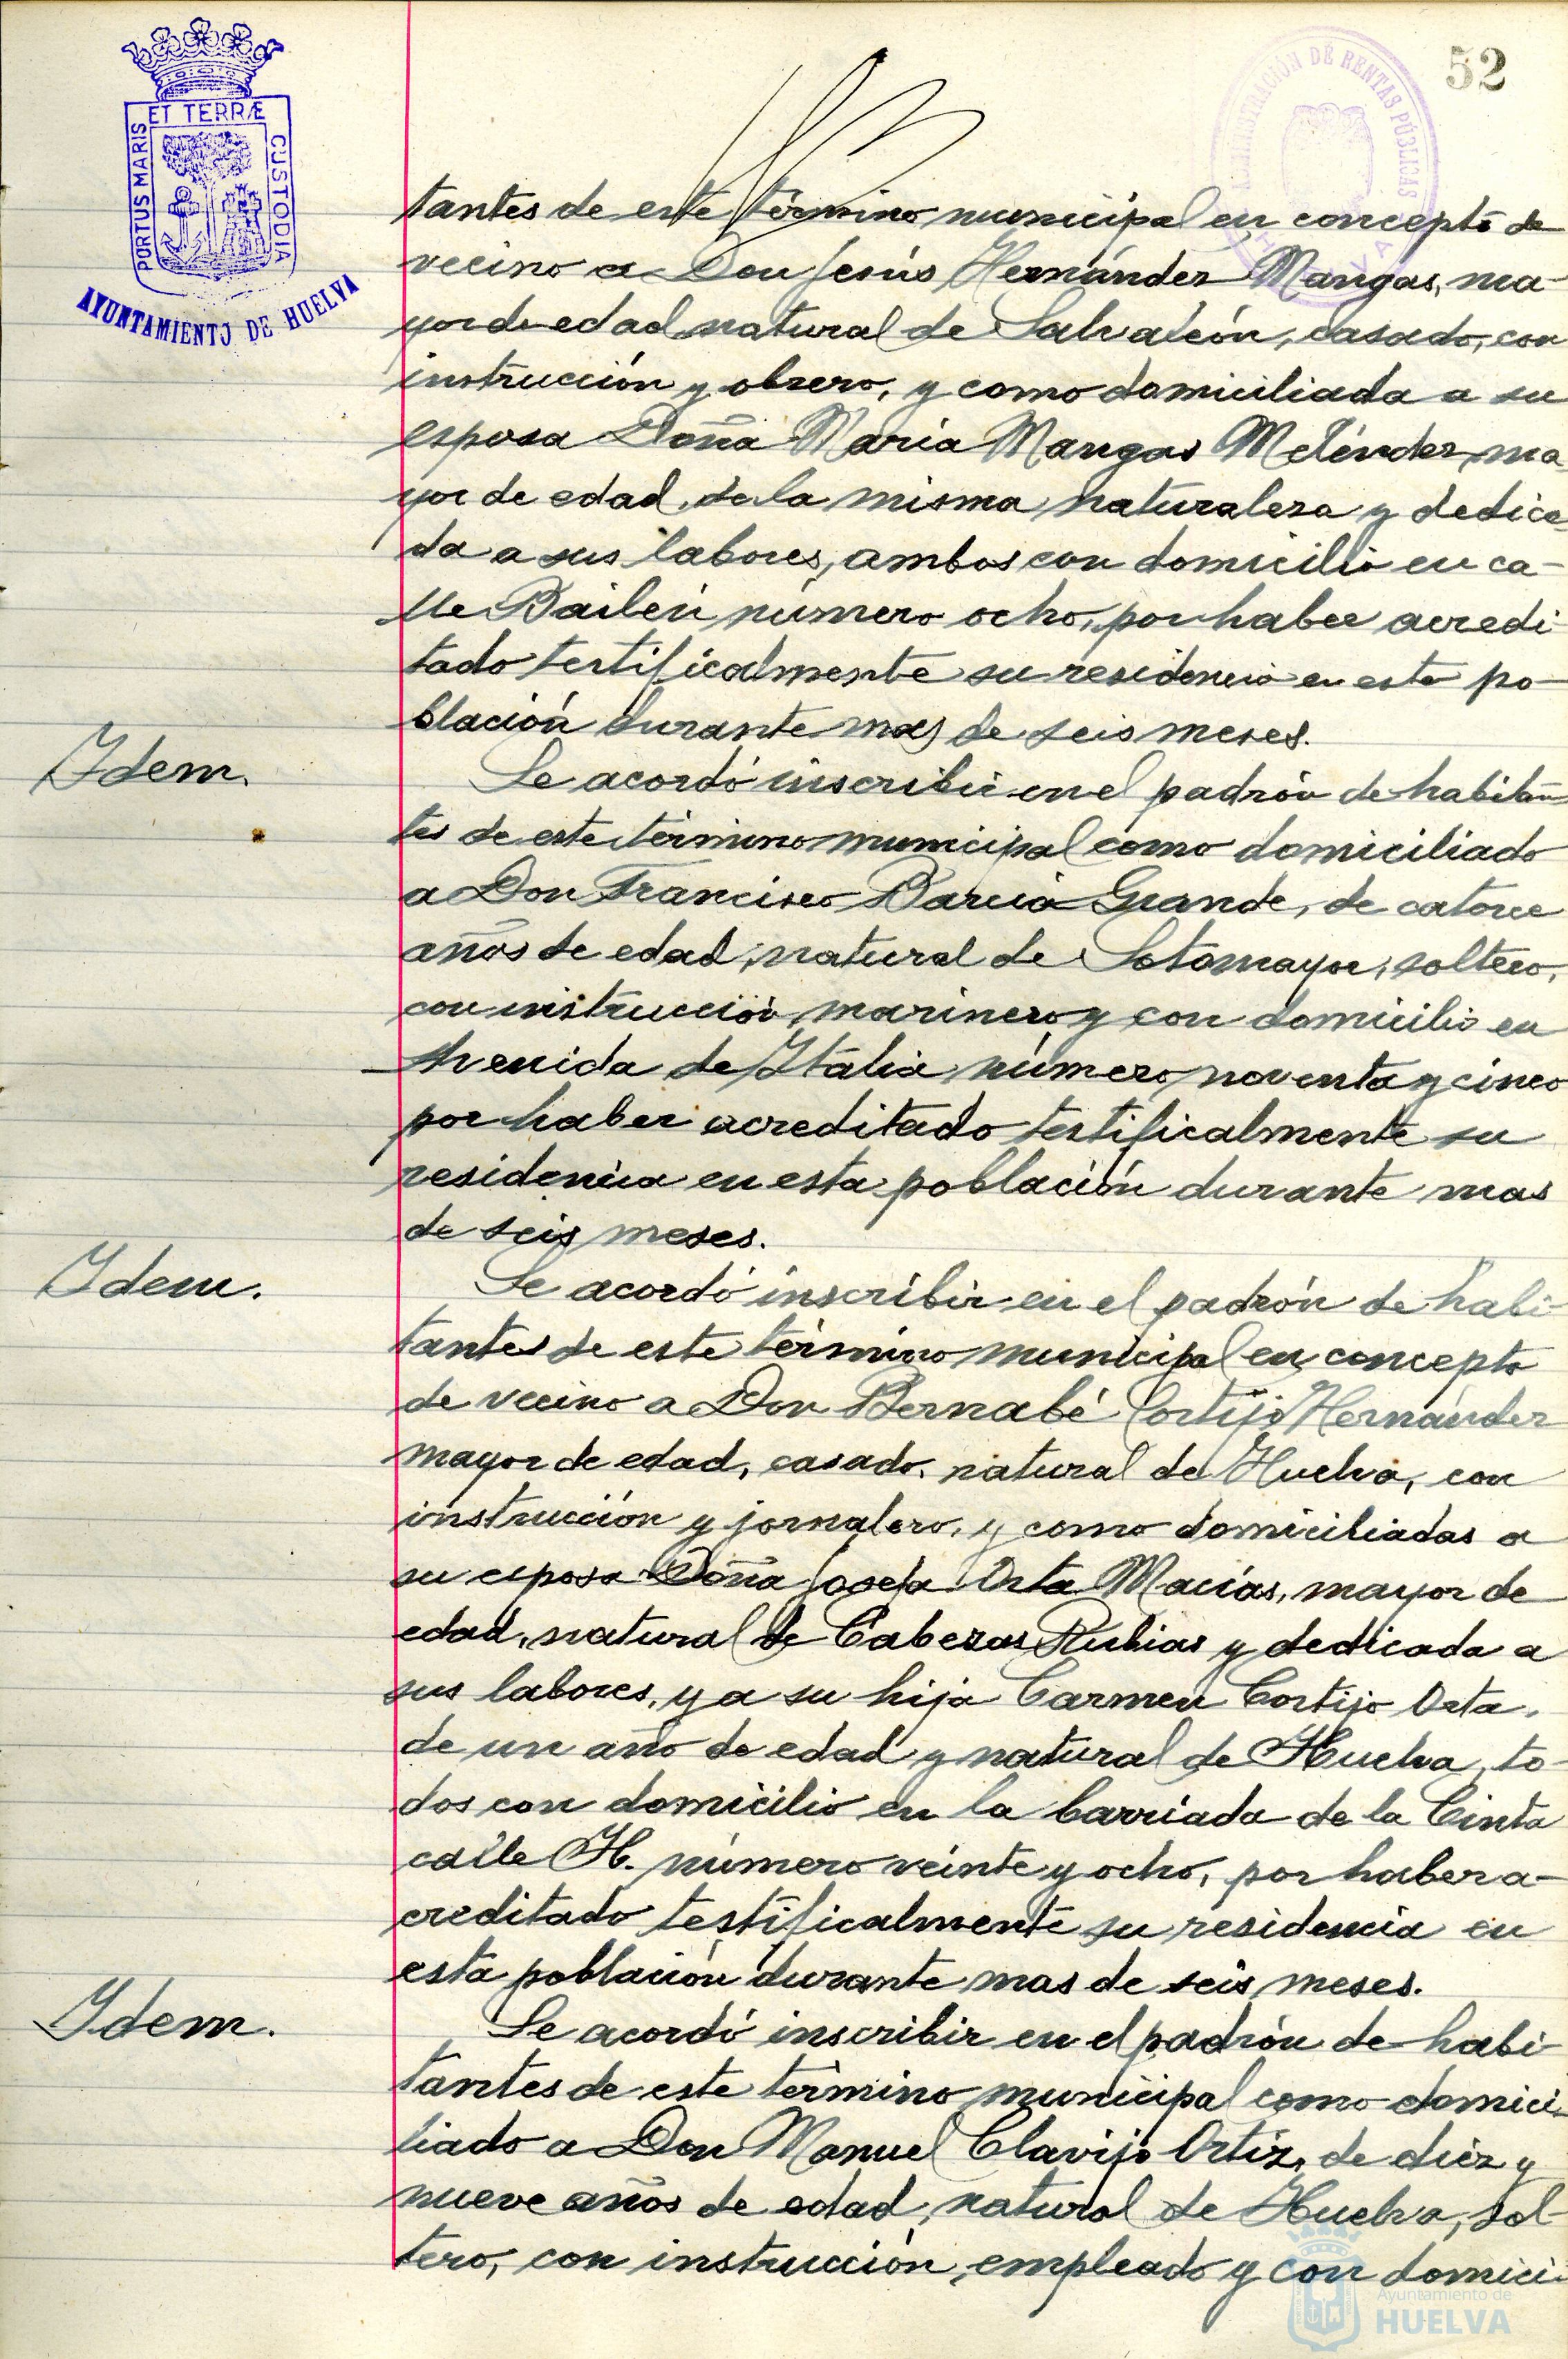 52
ET TERRÆ
PORTUS MARIS
CUSTODIA
AYUNTAMIENTO DE HUELVA
ADMINISTRACIÓN DE RENTAS PÚBLICAS
tantes de este término municipal en concepto de
vecino a Don Jesús Hernández Mangas, ma-
yor de edad natural de Salvaleón, casado, con
instrucción y obrero, y como domiciliada a su
esposa Doña Maria Mangas Meléndez, ma
yor de edad, de la misma naturaleza y dedica
da a sus labores, ambos con domicilio en ca-
lle Bailén número ocho, por haber acredi-
tado testificalmente su residencia en esta po-
blación durante mas de seis meses.
Idem.
Se acordó inscribir en el padrón de habitan
tes de este término municipal como domiciliado
a Don Francisco Barcia Grande, de catorce
años de edad, natural de Sotomayor, soltero,
con instrucción, marinero y con domicilio en
Avenida de Italia número noventa y cinco
por haber acreditado testificalmente su
residencia en esta población durante mas
de seis meses.
Idem.
Se acordó inscribir en el padrón de habi-
tantes de este término municipal en concepto
de vecino a Don Bernabé Cortijo Hernández
mayor de edad, casado, natural de Huelva, con
instrucción y jornalero, y como domiciliadas a
su esposa Doña Josefa Orta Macías, mayor de
edad, natural de Cabezas Rubias y dedicada a
sus labores, y a su hija Carmen Cortijo Orta,
de un año de edad y natural de Huelva, to-
dos con domicilio en la barriada de la Cinta
calle H. número veinte y ocho, por haber a-
creditado testificalmente su residencia en
esta población durante mas de seis meses.
Idem.
Se acordó inscribir en el padrón de habi-
tantes de este término municipal como domici-
liado a Don Manuel Clavijo Ortiz, de diez y
nueve años de edad, natural de Huelva, sol-
tero, con instrucción, empleado y con domici-
Ayuntamiento de
HUELVA